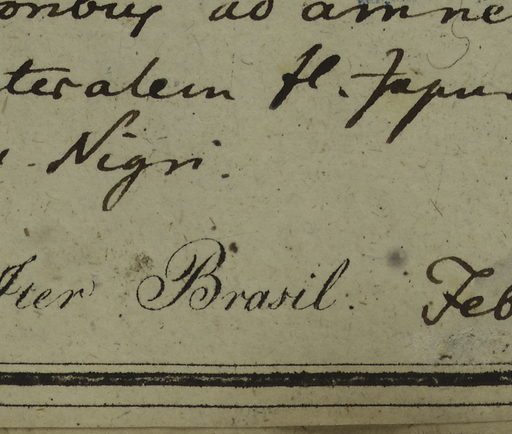 onbus ad amne
teralem fl. Japur
Nigri.
Iter Brasil. Feb